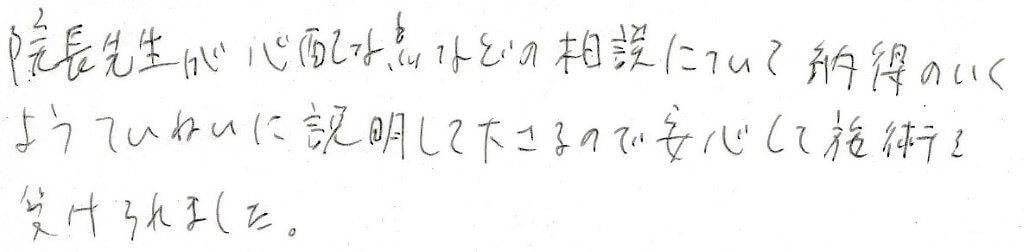 院長先生が心配な点などの相談について納得のいく
ようていねいに説明して下さるので安心して施術を
受けられました。